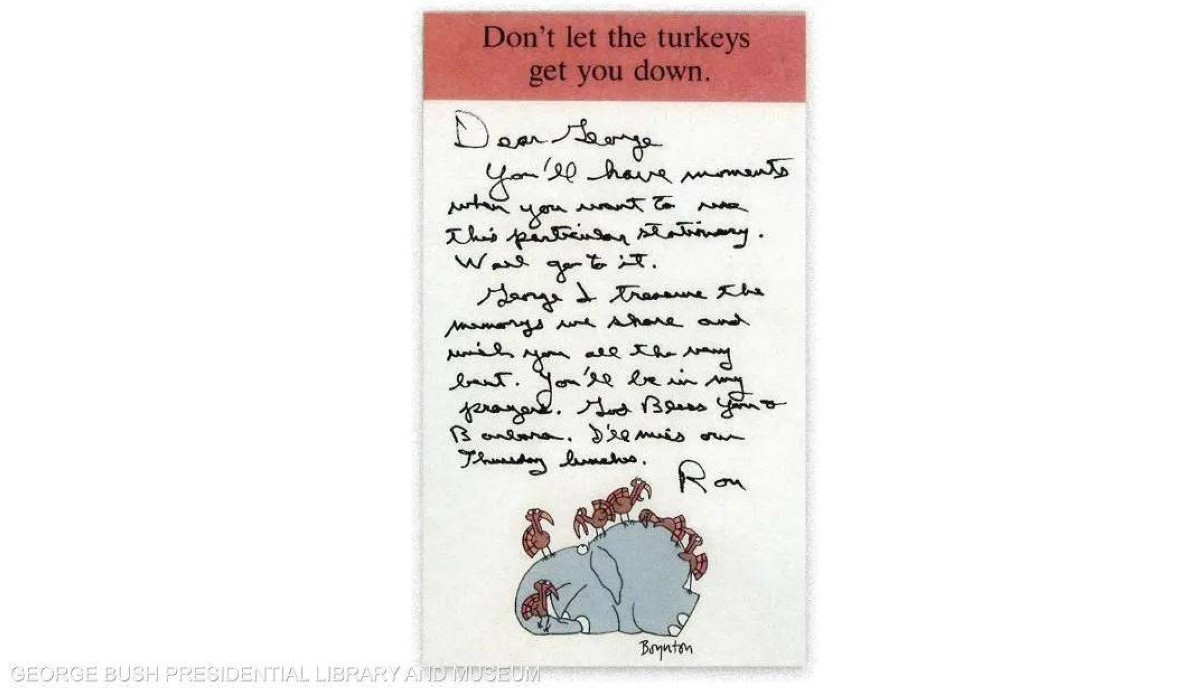 Don't let the turkeys
get you down.
Dear George
You'll have moments
when you want to use
this particular stationary.
Well go to it.
George I treasure the
memorys we share and
wish you all the very
best. You'll be in my
prayers. God Bless You &
Barbara. I'll miss our
Thursday lunches.
Ron
Boynton
GEORGE BUSH PRESIDENTIAL LIBRARY AND MUSEUM